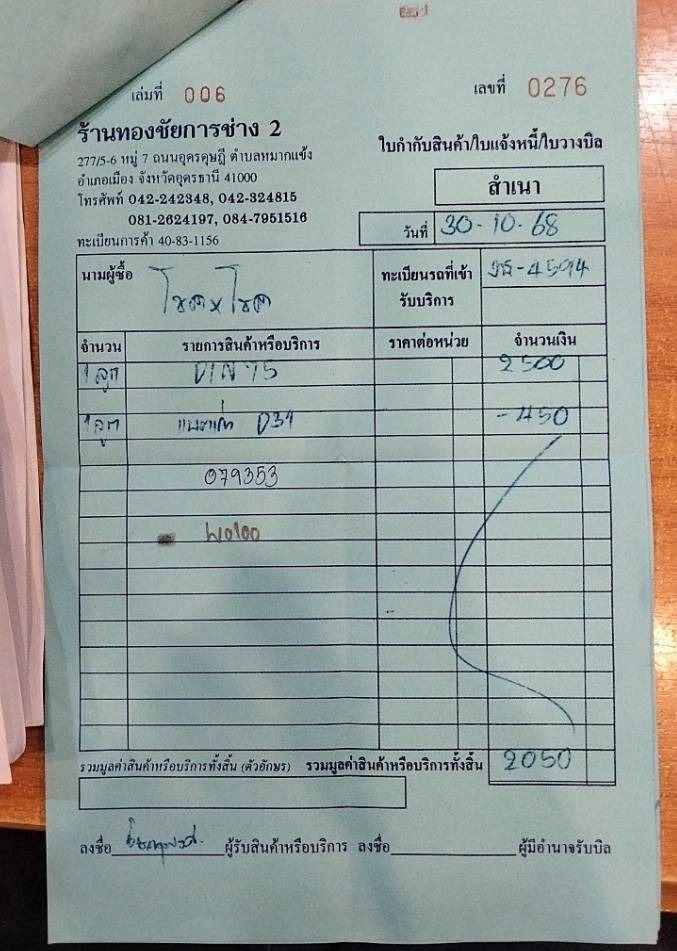 เล่มที่ 006
เลขที่ 0276
ร้านทองชัยการช่าง 2
277/5-6 หมู่ 7 ถนนอุดรดุษฎี ตำบลหมากแข้ง
อำเภอเมือง จังหวัดอุดรธานี 41000
โทรศัพท์ 042-242348, 042-324815
081-2624197, 084-7951516
ทะเบียนการค้า 40-83-1156
ใบกำกับสินค้า/ใบแจ้งหนี้/ใบวางบิล
สำเนา
วันที่ 30-10-68
นามผู้ซื้อ โชคxโชค
ทะเบียนรถที่เข้ารับบริการ -4594
จำนวน รายการสินค้าหรือบริการ ราคาต่อหน่วย จำนวนเงิน
1 ลูก DIN 75 2500
1 ลูก แบตเก่า D31 -450
079353
รวมมูลค่าสินค้าหรือบริการทั้งสิ้น (ตัวอักษร) รวมมูลค่าสินค้าหรือบริการทั้งสิ้น 2050
ลงชื่อ ผู้รับสินค้าหรือบริการ ลงชื่อ ผู้มีอำนาจรับบิล